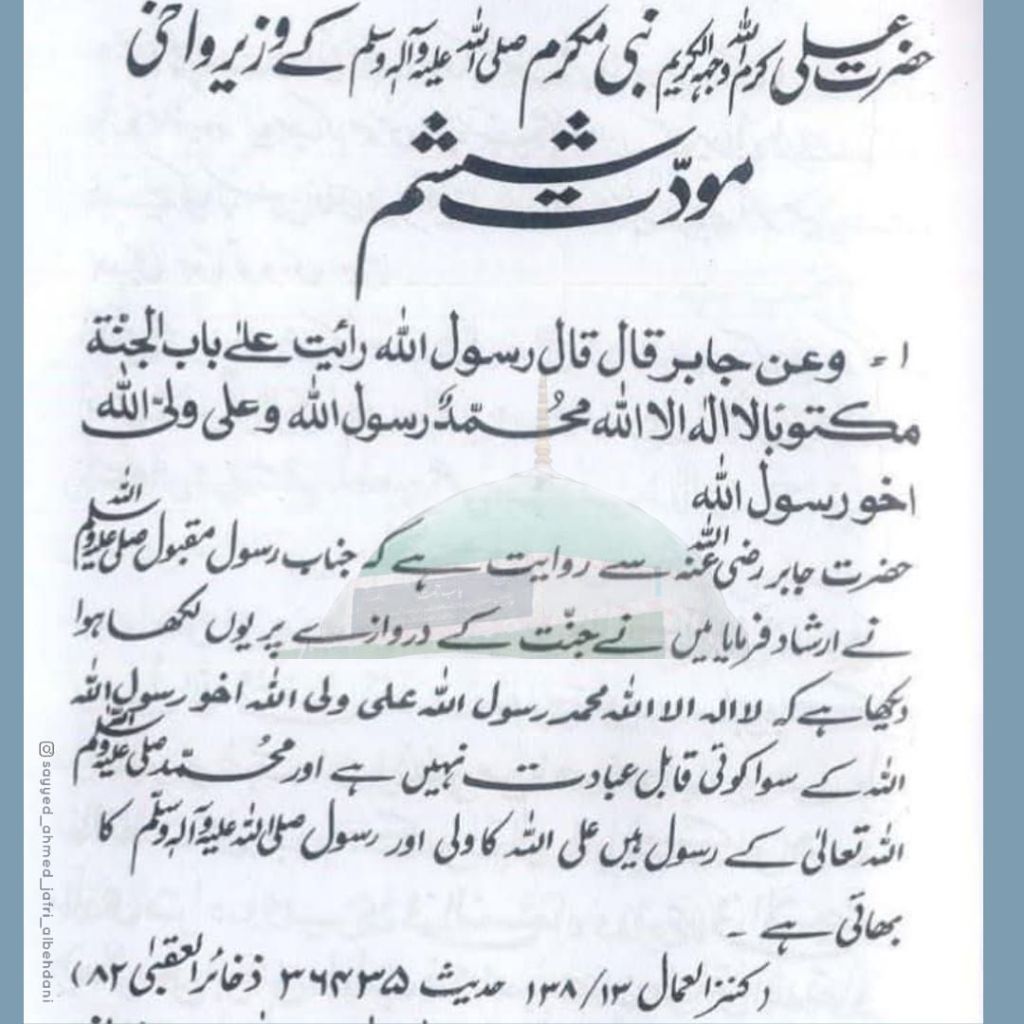 حضرت علی کرم اللہ وجہہ الکریم نبی مکرم صلی اللہ علیہ وآلہ وسلم کے وزیر واخی
مودّت ششم
۱ - وعن جابر قال قال رسول الله رائیت علی باب الجنة
مکتوبا لا اله الا الله محمّدٌ رسول الله وعلی ولی الله
اخو رسول الله
حضرت جابر رضی اللہ عنہ سے روایت ہے کہ جناب رسول مقبول صلی اللہ علیہ وسلم
نے ارشاد فرمایا میں نے جنّت کے دروازے پر یوں لکھا ہوا
دیکھا ہے کہ لا الہ الا اللہ محمد رسول اللہ علی ولی اللہ اخو رسول اللہ
اللہ کے سوا کوئی قابل عبادت نہیں ہے اور محمّد صلی اللہ علیہ وسلم
اللہ تعالیٰ کے رسول ہیں علی اللہ کا ولی اور رسول صلی اللہ علیہ وآلہ وسلّم کا
بھائی ہے ۔
( کنز العمال ۱۳/ ۱۳۸ حدیث ۳۶۴۳۵ ذخائر العقبیٰ ۸۲)
sayyed_ahmed_jafri_albehdani